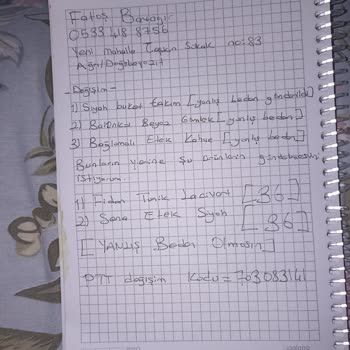 Fatoş
0533 418 8756
Yeni mahalle Taşkın Sokak no:83
Ağrı/Doğubayazıt
- Değişim -
1) Siyah buket takım [yanlış beden gönderildi]
2) Balonkol Beyaz Gömlek [yanlış beden]
3) Bağlamalı Etek Kahve [yanlış beden]
Bunların yerine şu ürünlerin gönderilmesini
istiyorum
1) Fidan Tunik Lacivert [36]
2) Sena Etek Siyah [36]
[YANLIŞ Beden Olmasın]
PTT değişim Kodu = 703083141